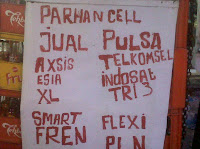 PARHAN CELL
JUAL PULSA
AXSIS TELKOMSEL
ESIA INDOSAT
XL TRI 3
SMART FLEXI
FREN PLN